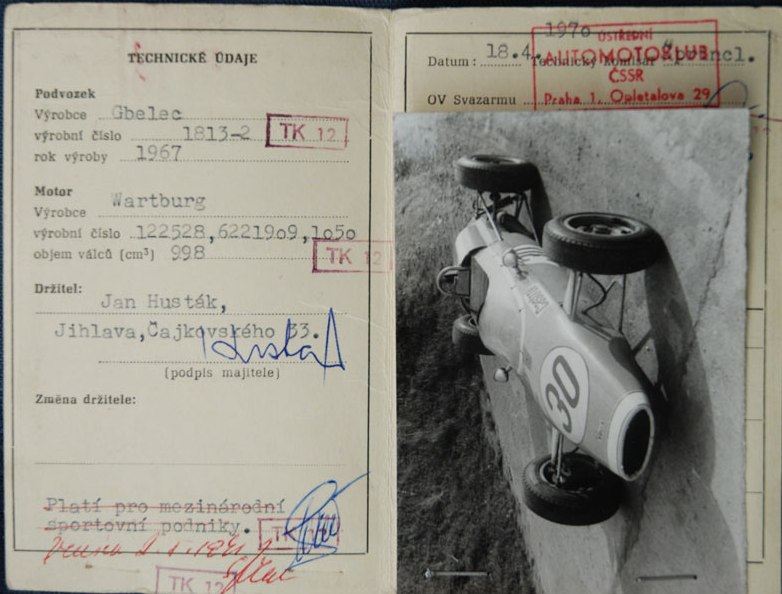 TECHNICKÉ ÚDAJE
Podvozek
Výrobce Gbelec
výrobní číslo 1813-2
TK 12
rok výroby 1967
Motor
Výrobce Wartburg
výrobní číslo 122528,6221909,1050
objem válců (cm³) 998
TK 12
Držitel:
Jan Husták,
Jihlava,Čajkovského 33.
(podpis majitele)
Změna držitele:
Platí pro mezinárodní
sportovní podniky.
TK 12
Datum: 18.4.1970 Technický komisař
ÚSTŘEDNÍ
AUTOMOTOKLUB
ČSSR
Praha 1, Opletalova 29
OV Svazarmu
30